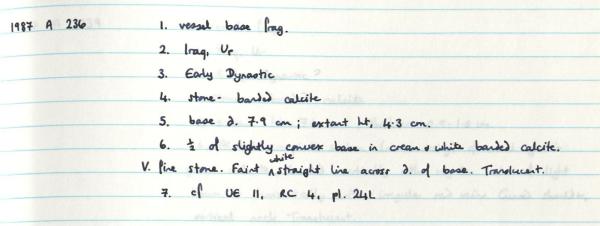 1987 A 236 1. vessel base frag.
2. Iraq, Ur
3. Early Dynastic
4. stone - banded calcite
5. base d. 7.9 cm; extant ht, 4.3 cm.
6. ½ of slightly convex base in cream & white banded calcite.
V. fine stone. Faint white straight line across d. of base. Translucent.
7. cf UE II, RC 4, pl. 241